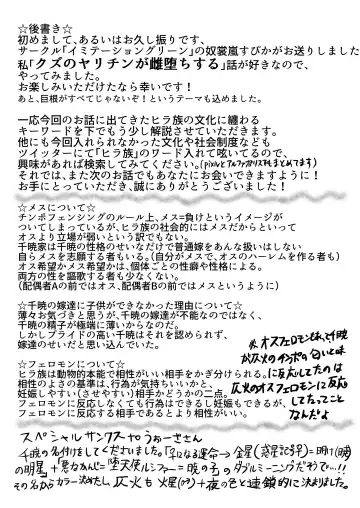 ☆後書き☆
初めまして、あるいはお久し振りです、
サークル「イミテーショングリーン」の奴裳嵐すぴかがお送りしました
私「クズのヤリチンが雌堕ちする」話が好きなので、
やってみました。
お楽しみいただけたなら幸いです！
あと、巨根がすべてじゃないぞ！というテーマも込めました。
一応今回のお話に出てきたヒラ族の文化に纏わる
キーワードを下でもう少し解説させていただきます。
他にも今回入れられなかった文化や社会制度なども
ツイッターにて「ヒラ族」のワード入れて呟いてるので、
興味があれば検索してみてください。
それでは、また次のお話でもあなたにお会いできますように！
お手にとっていただき、誠にありがとうございました！
☆メスについて☆
チンポフェンシングのルール上、メス=負けというイメージが
ついてしまっているが、ヒラ族の社会的にはメスだからといって
オスより立場が弱いという訳でもない。
千暁家は千暁の性格のせいなだけで普通嫁をあんな扱いはしない
自らメスを志願する者もいる。（自分がメスで、オスのハーレムを作る者も）
オス希望かメス希望かは、個体ごとの性癖や性格による。
両方の性を謳歌する者も少なくない。
（配偶者Aの前ではオス、配偶者Bの前ではメスというように）
☆千暁の嫁達に子供ができなかった理由について☆
薄々お気づきと思うが、千暁の嫁達が不能なのではなく、
千暁の精子が極端に薄いからなのだ。
しかしプライドの高い千暁はそれを認められず、
嫁達のせいだと思い込んでいた。
☆フェロモンについて☆
ヒラ族は動物的本能で相性がいい相手をかぎ分けられる。
相性のよさの基準は、行為が気持ちいいかと、
妊娠しやすい（させやすい）相手かどうかの二点。
フェロモンに反応しなくても行為はできるし妊娠もできるが、
フェロモンに反応する相手であるとより相性がいい。
スペシャルサンクスto うぉーさん